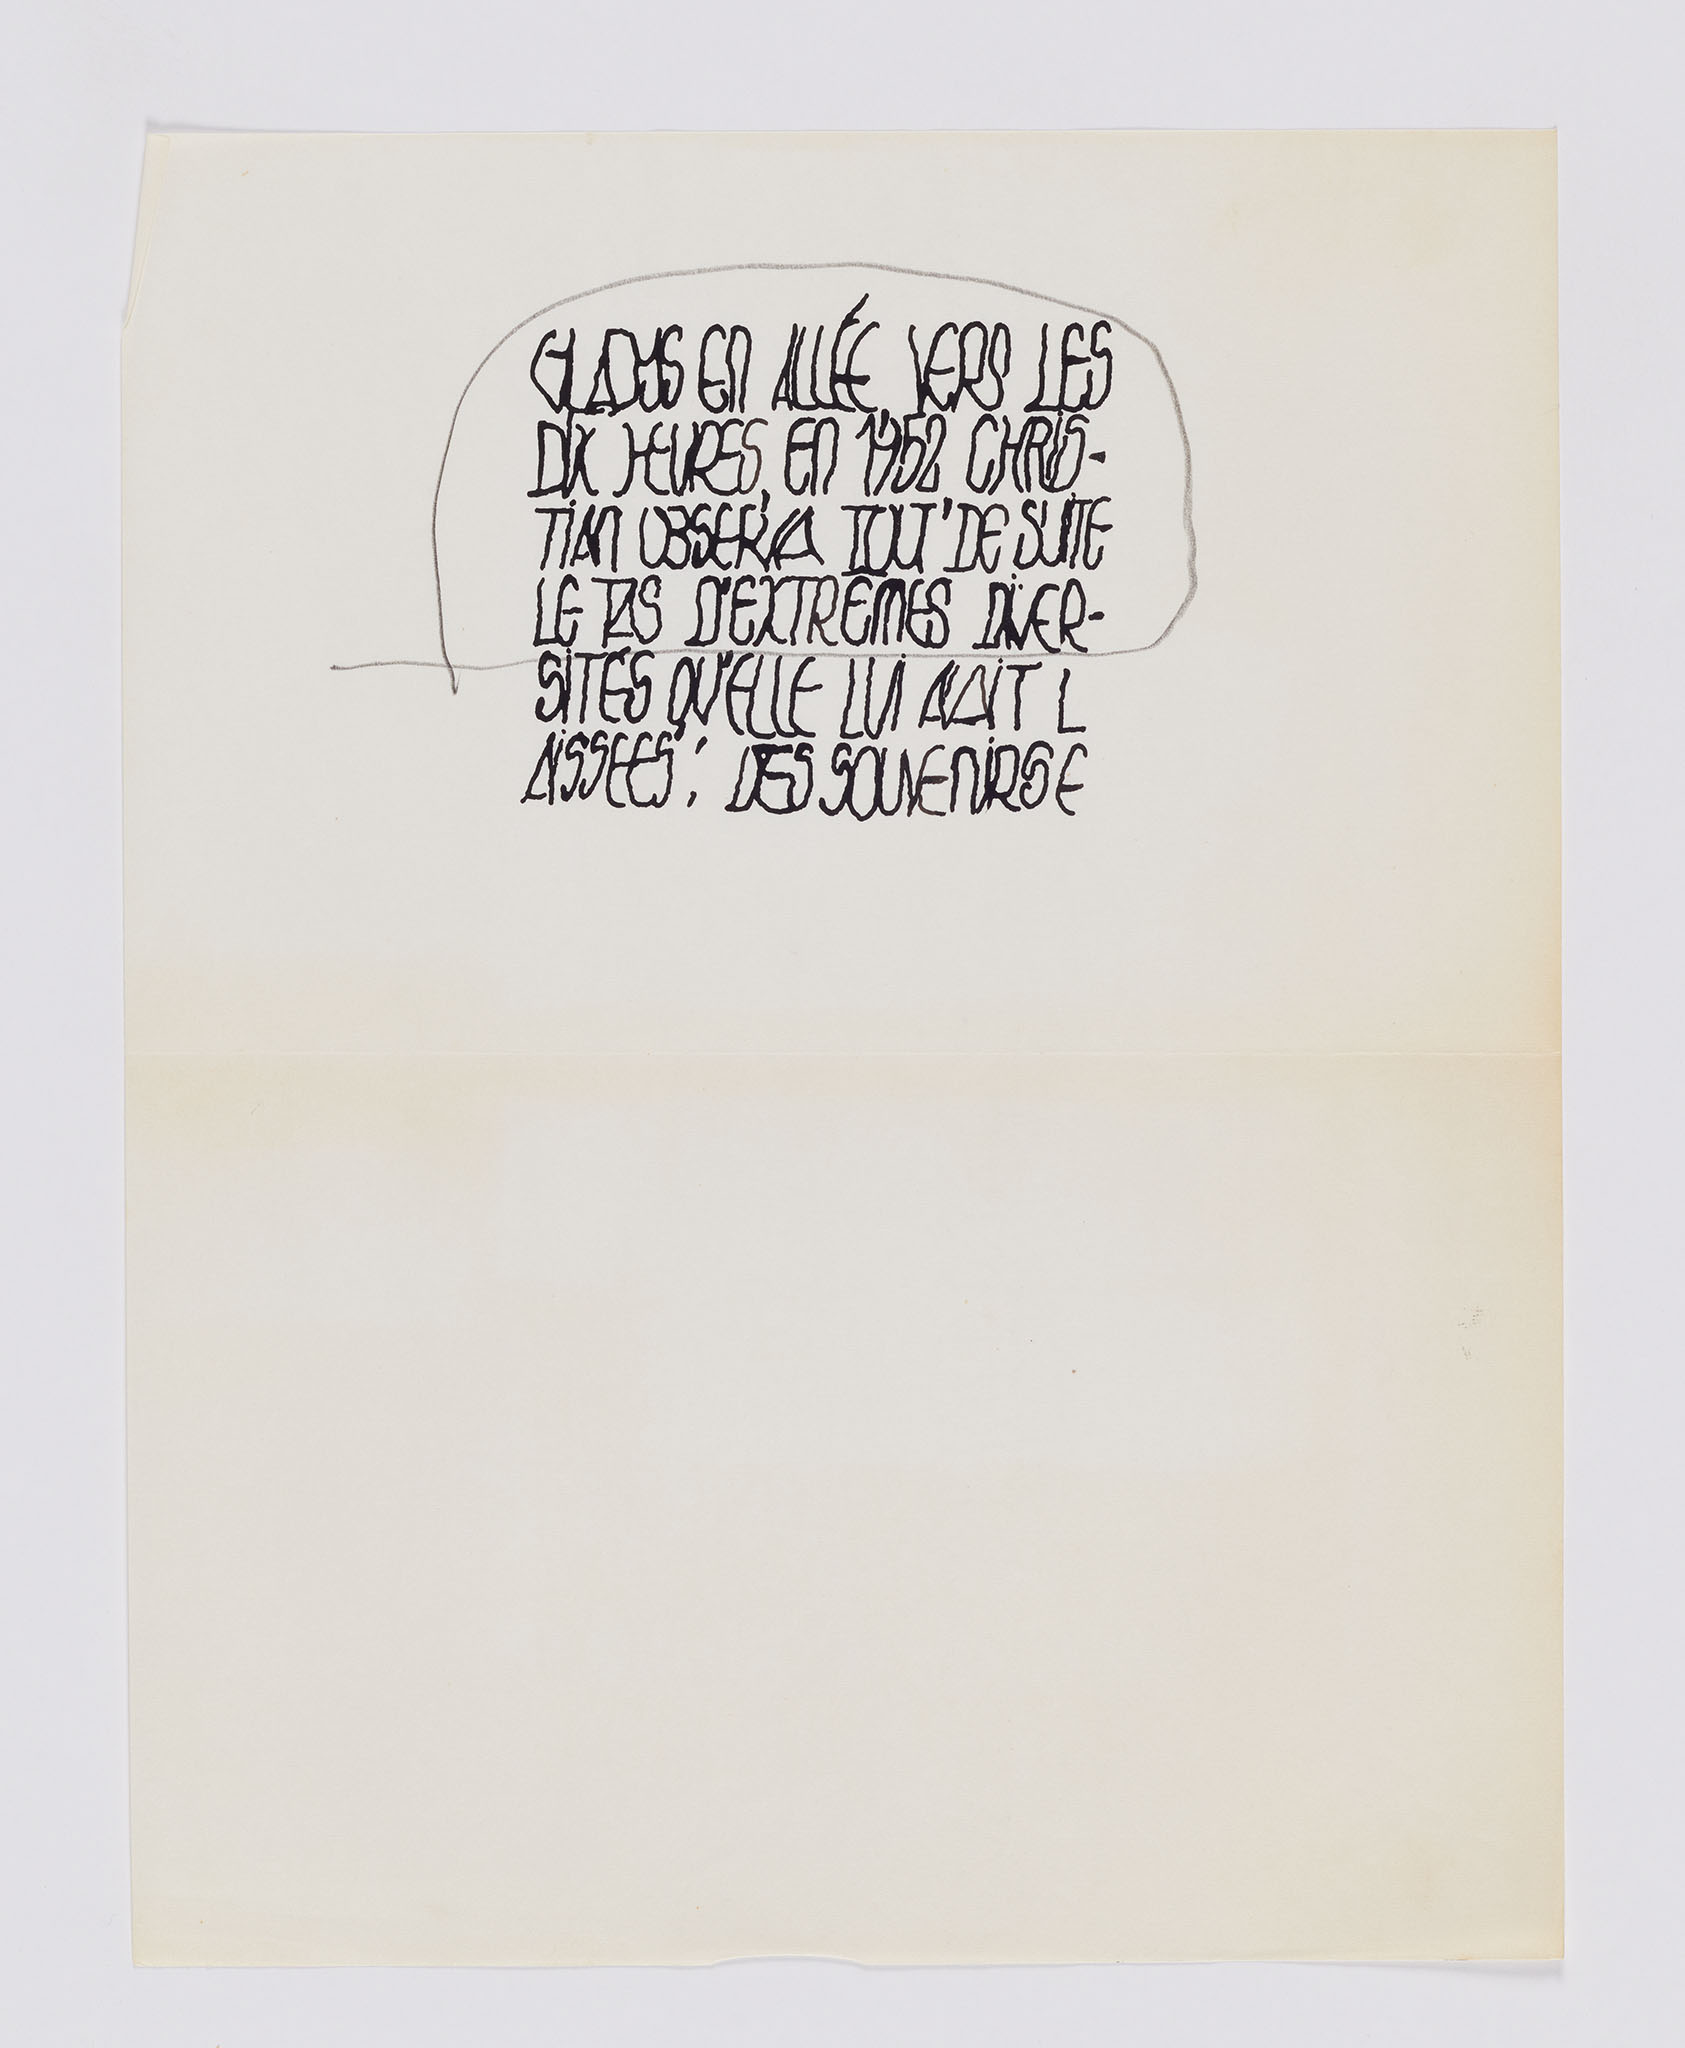 GLADYS EN ALLÉE VERS LES
DIX HEURES, EN 1952 CHRIS-
TIAN OBSERVA TOUT' DE SUITE
LE TAS D'EXTRÊMES DIVER-
SITÉS QU'ELLE LUI AVAIT L
AISSÉES; DES SOUVENIRS E